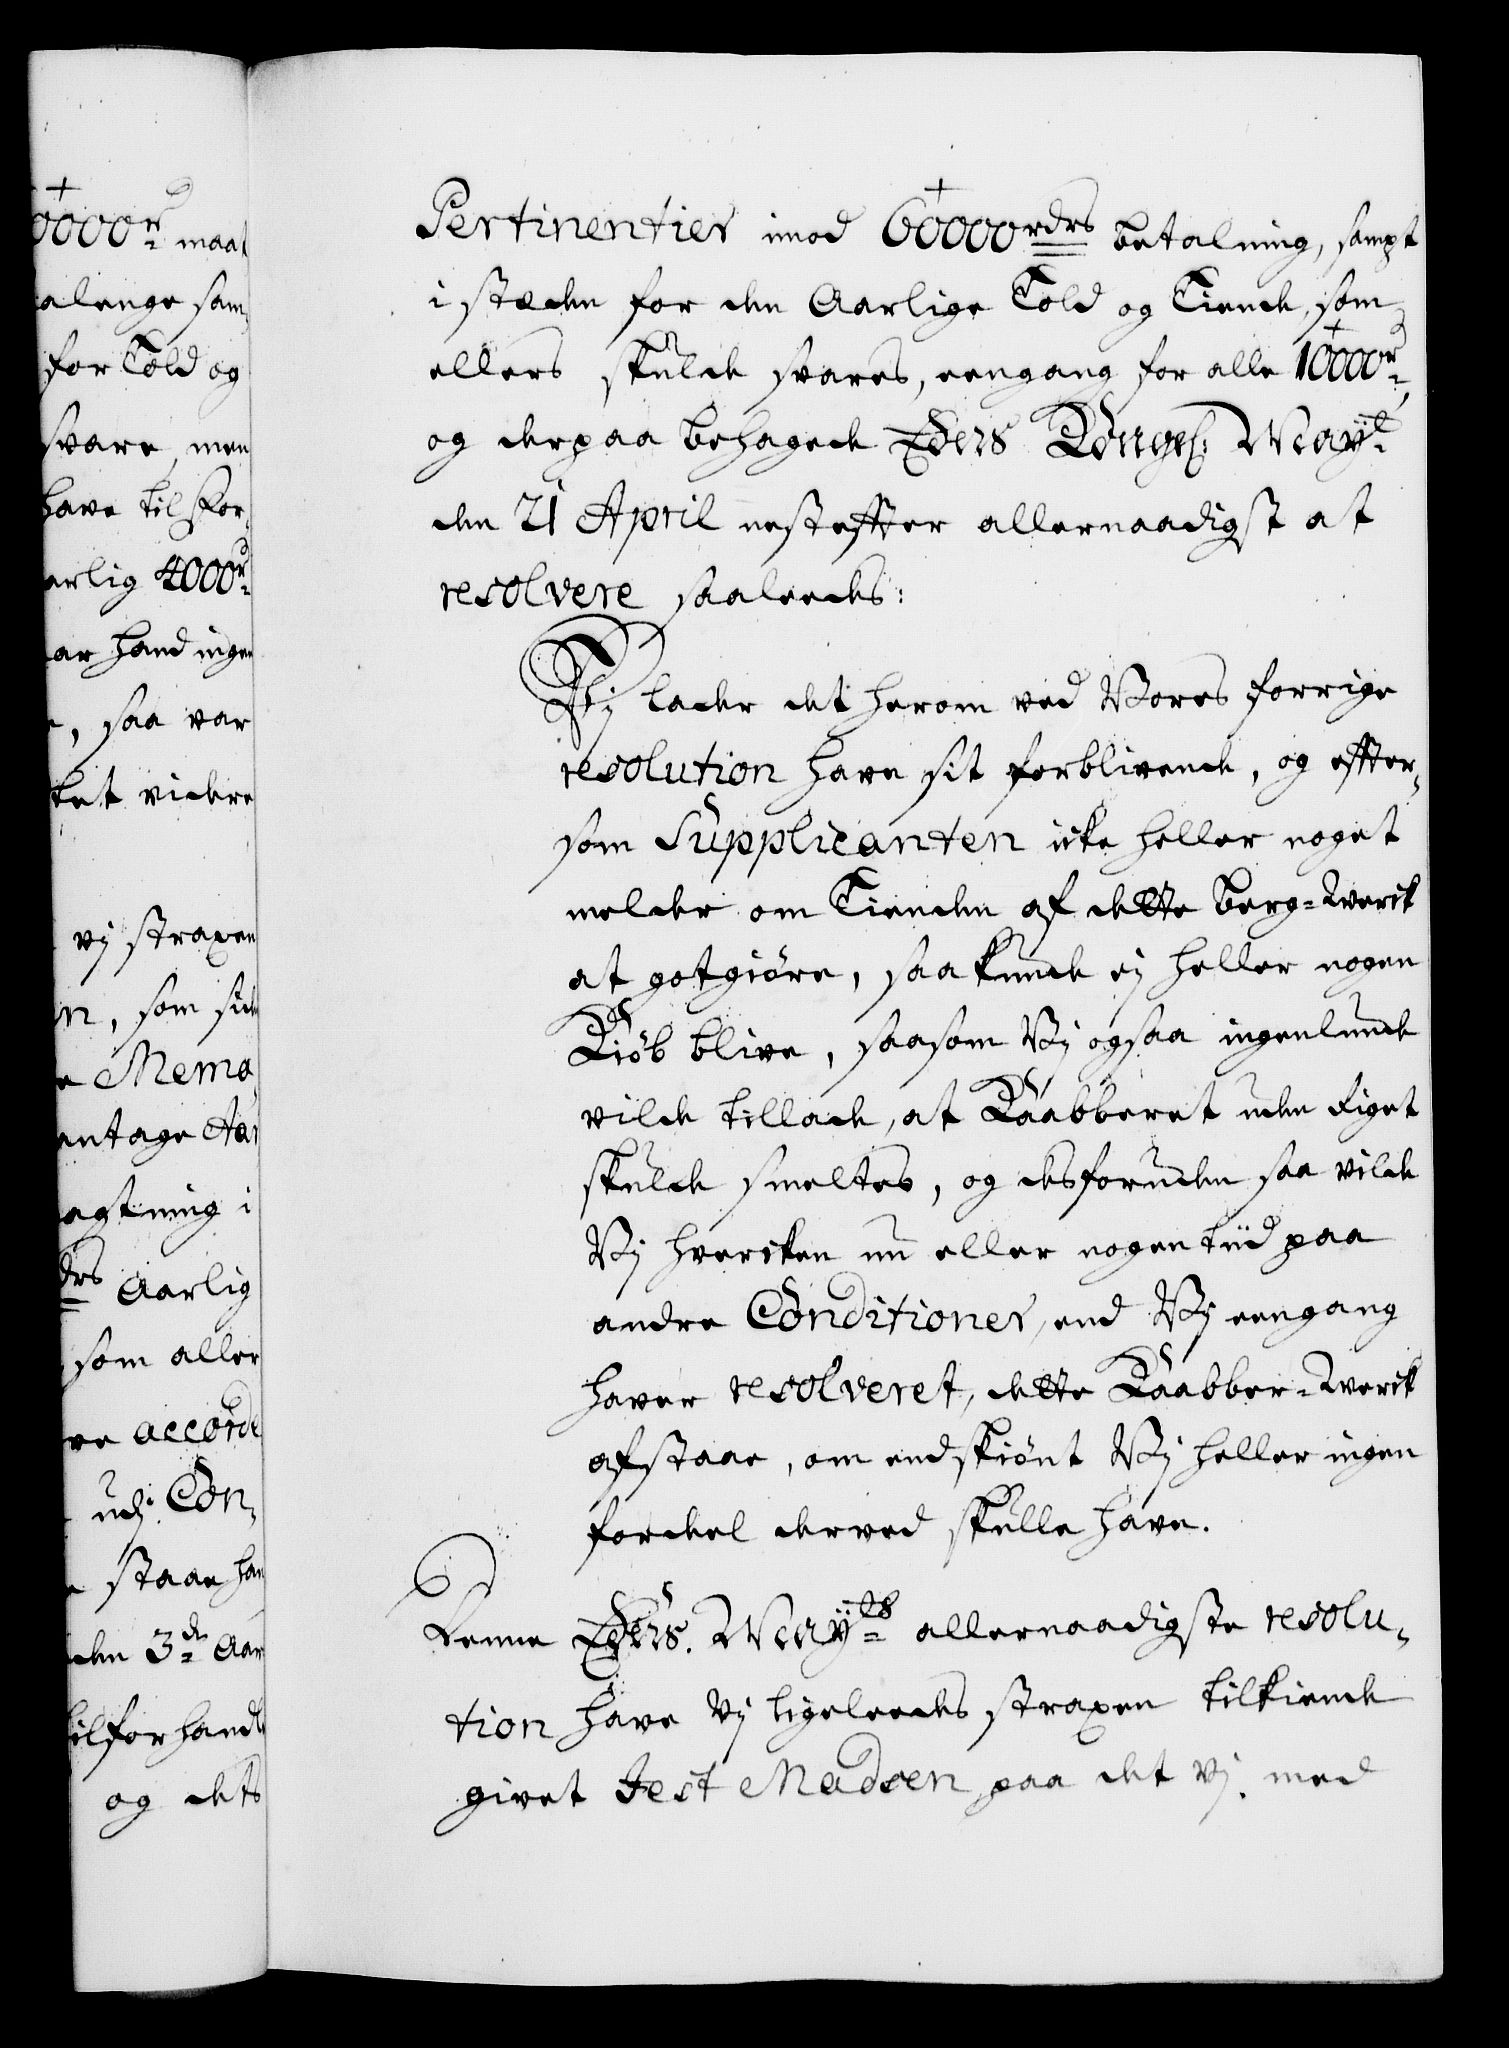 0000r maat
alenge sam
for Told og
svare, men
have til for-
arlig 4000r
ar hand ingen
e, saa var
ket videre
vj straxen
n, som sid
e Memo
entage Aar
agtning i
drs Aarlig
som aller
ve accorde
udj Con,
e staae han
den 3de Aar
tilforhandl
og dets
Pertinentier imod 60000rdrs betalning, sampt
i stæden for den Aarlige Told og Tiende, som
ellers skulde svares, eengang for alle 10000r,
og derpaa behagede Eders Kongel: Mayt
den 21 April nesteffter allernaadigst at
resolvere saaleedes:
Vj lader det herom ved Vores forrige
resolution have sit forblivende, og effter-
som Supplicanten icke heller noget
melder om Tienden af dette Berg-Werck
at gotgiøre, saa kunde ej heller nogen
Kiøb blive, saasom Vj ogsaa ingenlunde
vilde tillade, at Kaabberet uden Riget
skulde smeltes, og desforuden saa vilde
Vj hvercken nu eller nogen tiid paa
andre Conditioner, end Vj eengang
haver resolveret, dette Kaabber-Werck
afstaae, om endskiønt Vj heller ingen
fordel derved skulle have.
Denne Eders. Mayts allernaadigste resolu-
tion have Vj ligeleedes straxen tilkiende
givet Jest Madsen, paa det Vj. med